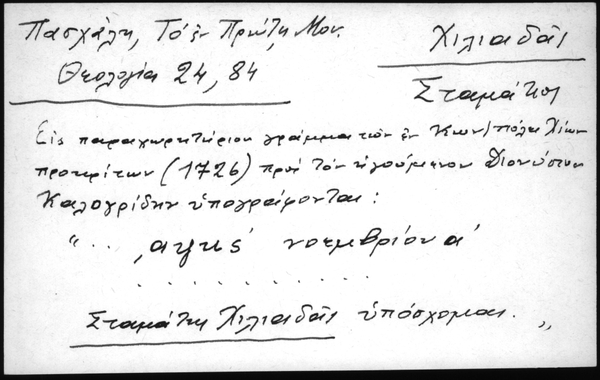 Πασχάλη, Τὸ ἐν Πρώτῃ Μον.
Θεολογία 24, 84
Χιλιαδᾶς
Σταμάτης
Εἰς παραχωρητήριον γράμμα τῶν ἐν Κων/πόλει Χίων
προκρίτων (1726) πρὸς τὸν ἡγούμενον Διονύσιον
Καλογρίδην ὑπογράφονται:
"... ,αψκϛ́ νοεμβρίου α΄
. . . . . . . . .
Σταμάτης Χιλιαδᾶς ὑπόσχομαι. "